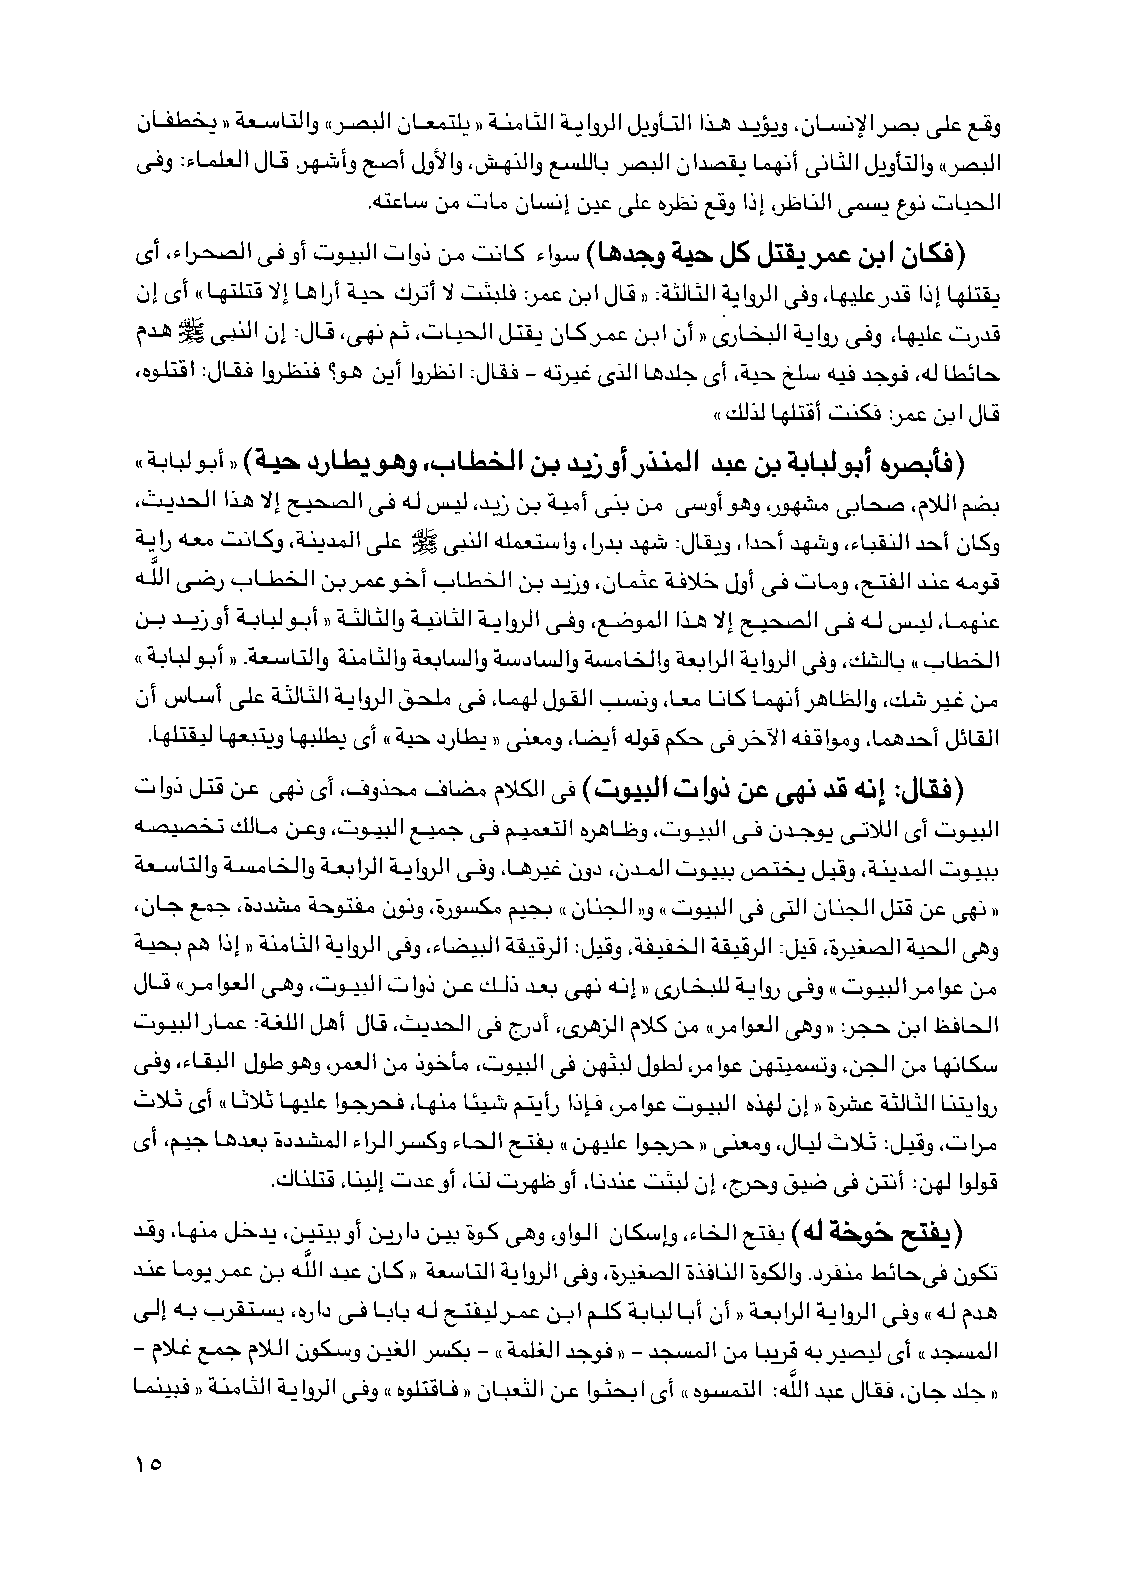 وقع على بصر الإنسان، ويؤيد هذا التأويل الرواية الثامنة « يلتمعان البصر» والتاسعة « يخطفان
البصر» والتأويل الثانى أنهما يقصدان البصر باللسع والنهش، والأول أصح وأشهر. قال العلماء: وفى
الحيات نوع يسمى الناظر، إذا وقع نظره على عين إنسان مات من ساعته.
(فكان ابن عمر يقتل كل حية وجدها) سواء كانت من ذوات البيوت أو فى الصحراء، أى
يقتلها إذا قدر عليها، وفى الرواية الثالثة: « قال ابن عمر: فلبثت لا أترك حية أراها إلا قتلتها » أى إن
قدرت عليها، وفى رواية البخارى « أن ابن عمر كان يقتل الحيات، ثم نهى، قال: إن النبى ﷺ هدم
حائطا له، فوجد فيه سلخ حية، أى جلدها الذى غيرته - فقال: انظروا أين هو؟ فنظروا فقال: اقتلوه،
قال ابن عمر: فكنت أقتلها لذلك »
(فأبصره أبو لبابة بن عبد المنذر أو زيد بن الخطاب، وهو يطارد حية) « أبو لبابة »
بضم اللام، صحابى مشهور، وهو أوسى من بنى أمية بن زيد، ليس له فى الصحيح إلا هذا الحديث،
وكان أحد النقباء، وشهد أحدا، ويقال: شهد بدرا، واستعمله النبى ﷺ على المدينة، وكانت معه راية
قومه عند الفتح، ومات فى أول خلافة عثمان، وزيد بن الخطاب أخو عمر بن الخطاب رضى اللَّه
عنهما، ليس له فى الصحيح إلا هذا الموضع، وفى الرواية الثانية والثالثة « أبو لبابة أو زيد بن
الخطاب » بالشك، وفى الرواية الرابعة والخامسة والسادسة والسابعة والثامنة والتاسعة. « أبو لبابة »
من غير شك، والظاهر أنهما كانا معا، ونسب القول لهما، فى ملحق الرواية الثالثة على أساس أن
القائل أحدهما، ومواقفه الآخر فى حكم قوله أيضا، ومعنى « يطارد حية » أى يطلبها ويتبعها ليقتلها.
(فقال: إنه قد نهى عن ذوات البيوت) فى الكلام مضاف محذوف، أى نهى عن قتل ذوات
البيوت أى اللاتى يوجدن فى البيوت، وظاهره التعميم فى جميع البيوت، وعن مالك تخصيصه
ببيوت المدينة، وقيل يختص ببيوت المدن، دون غيرها، وفى الرواية الرابعة والخامسة والتاسعة
« نهى عن قتل الجنان التى فى البيوت » و« الجنان » بجيم مكسورة، ونون مفتوحة مشددة، جمع جان،
وهى الحية الصغيرة، قيل: الرقيقة الخفيفة، وقيل: الرقيقة البيضاء، وفى الرواية الثامنة « إذا هم بحية
من عوامر البيوت » وفى رواية للبخارى « إنه نهى بعد ذلك عن ذوات البيوت، وهى العوامر» قال
الحافظ ابن حجر: « وهى العوامر» من كلام الزهرى، أدرج فى الحديث، قال أهل اللغة: عمار البيوت
سكانها من الجن، وتسميتهن عوامر، لطول لبثهن فى البيوت، مأخوذ من العمر، وهو طول البقاء، وفى
روايتنا الثالثة عشرة « إن لهذه البيوت عوامر، فإذا رأيتم شيئا منها، فحرجوا عليها ثلاثا » أى ثلاث
مرات، وقيل: ثلاث ليال، ومعنى « حرجوا عليهن » بفتح الحاء وكسر الراء المشددة بعدها جيم، أى
قولوا لهن: أنتن فى ضيق وحرج، إن لبثت عندنا، أو ظهرت لنا، أو عدت إلينا، قتلناك.
(يفتح خوخة له) بفتح الخاء، وإسكان الواو، وهى كوة بين دارين أو بيتين، يدخل منها، وقد
تكون فى حائط منفرد. والكوة النافذة الصغيرة، وفى الرواية التاسعة « كان عبد اللَّه بن عمر يوما عند
هدم له » وفى الرواية الرابعة « أن أبا لبابة كلم ابن عمر ليفتح له بابا فى داره، يستقرب به إلى
المسجد » أى ليصير به قريبا من المسجد - « فوجد الغلمة » - بكسر الغين وسكون اللام جمع غلام -
« جلد جان، فقال عبد اللَّه: التمسوه » أى ابحثوا عن الثعبان « فاقتلوه » وفى الرواية الثامنة « فبينما
١٥